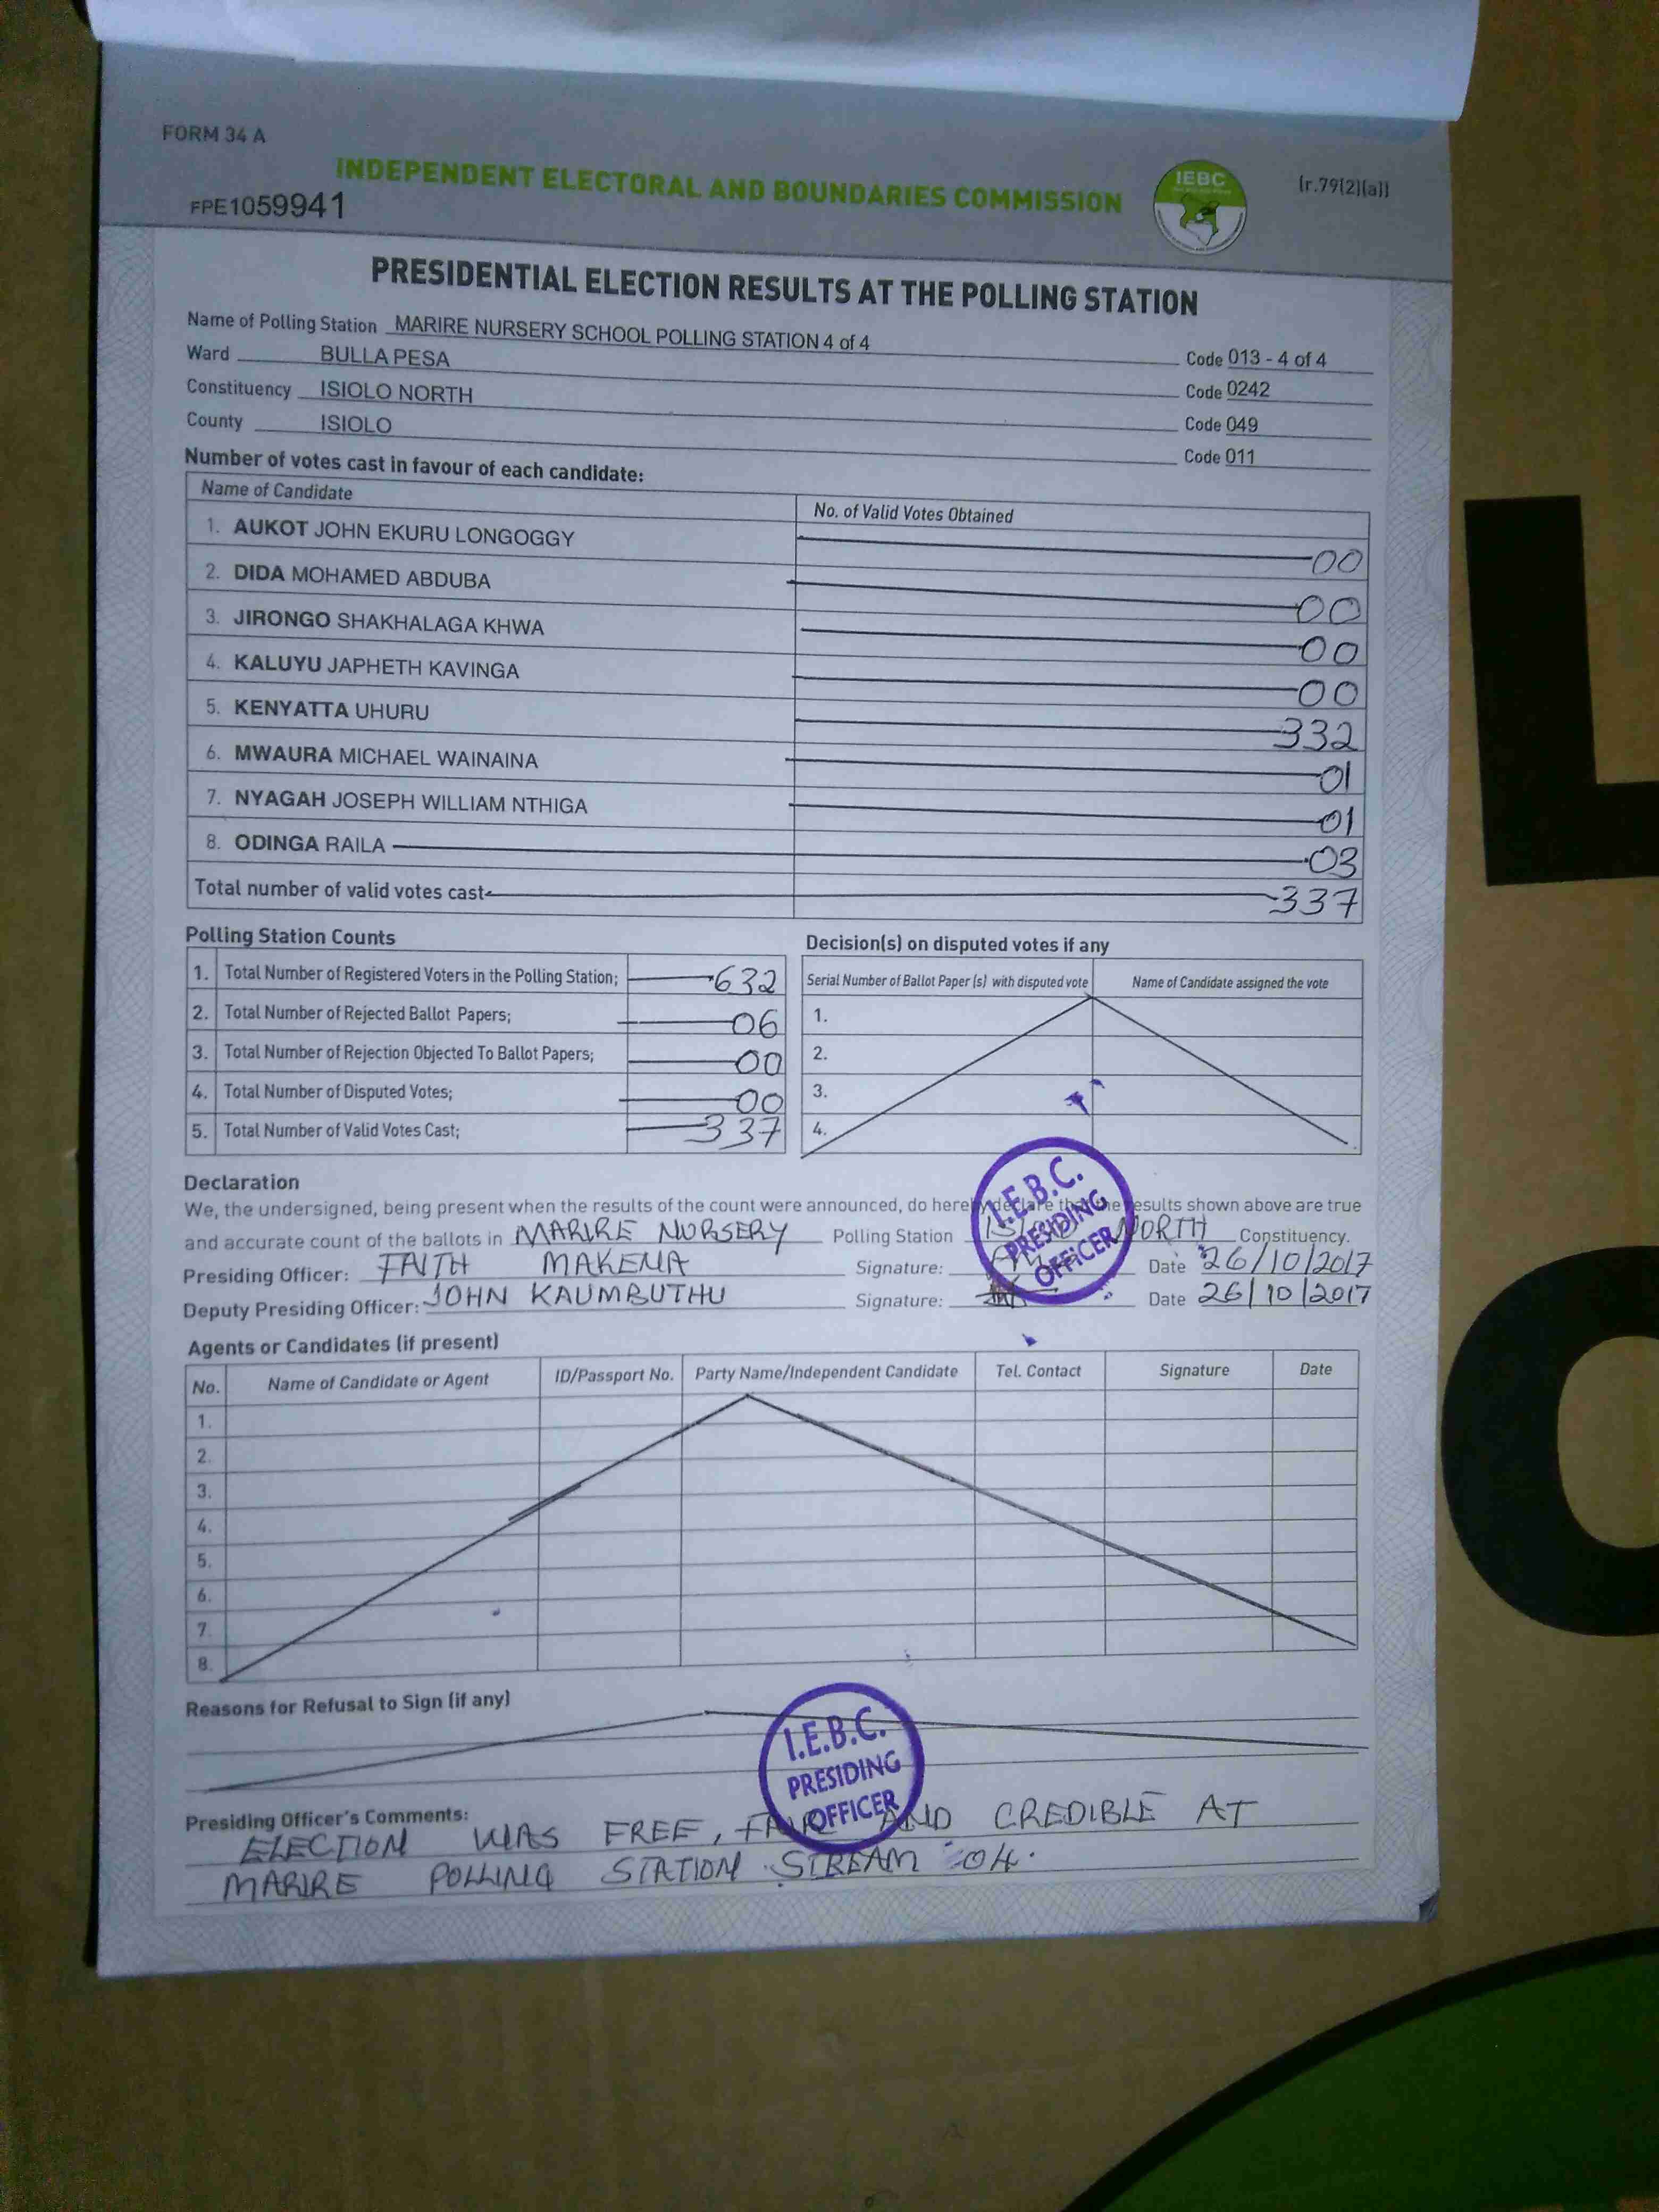 FORM 34 A
INDEPENDENT ELECTORAL AND BOUNDARIES COMMISSION
IEBC
(r.79(2)(a))
FPE1059941
PRESIDENTIAL ELECTION RESULTS AT THE POLLING STATION
Name of Polling Station MARIRE NURSERY SCHOOL POLLING STATION 4 of 4 Code 013 - 4 of 4
Ward BULLA PESA Code 0242
Constituency ISIOLO NORTH Code 049
County ISIOLO Code 011
Number of votes cast in favour of each candidate:
Name of Candidate No. of Valid Votes Obtained
1. AUKOT JOHN EKURU LONGOGGY 00
2. DIDA MOHAMED ABDUBA 00
3. JIRONGO SHAKHALAGA KHWA 00
4. KALUYU JAPHETH KAVINGA 00
5. KENYATTA UHURU 332
6. MWAURA MICHAEL WAINAINA 01
7. NYAGAH JOSEPH WILLIAM NTHIGA 01
8. ODINGA RAILA 03
Total number of valid votes cast 337
Polling Station Counts
1. Total Number of Registered Voters in the Polling Station; 632
2. Total Number of Rejected Ballot Papers; 06
3. Total Number of Rejection Objected To Ballot Papers; 00
4. Total Number of Disputed Votes; 00
5. Total Number of Valid Votes Cast; 337
Decision(s) on disputed votes if any
Serial Number of Ballot Paper (s) with disputed vote Name of Candidate assigned the vote
1.
2.
3.
4.
Declaration
We, the undersigned, being present when the results of the count were announced, do hereby declare that the results shown above are true
and accurate count of the ballots in MARIRE NURSERY Polling Station NORTH Constituency.
Presiding Officer: FAITH MAKENA Signature: Date 26/10/2017
Deputy Presiding Officer: JOHN KAUMBUTHU Signature: Date 26/10/2017
I.E.B.C.
PRESIDING
OFFICER
Agents or Candidates (if present)
No. Name of Candidate or Agent ID/Passport No. Party Name/Independent Candidate Tel. Contact Signature Date
1.
2.
3.
4.
5.
6.
7.
8.
Reasons for Refusal to Sign (if any)
I.E.B.C.
PRESIDING
OFFICER
Presiding Officer's Comments:
ELECTION WAS FREE, FAIR AND CREDIBLE AT
MARIRE POLLING STATION STREAM 04.